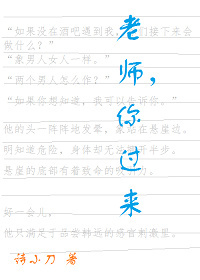 “如果没在酒吧遇到我，们接下来会
做什么？”
“象男人女人一样。”
“两个男人怎么作？”
“如果你想知道，我可以告诉你。”
他的头一阵阵地发晕，象站在悬崖边。
明知道危险，身体却无法开半步。
悬崖的底部有着致命的力。
好一会儿，
他只满足于品尝韩远的感官刺激里。
老师，你过来
小刀 著